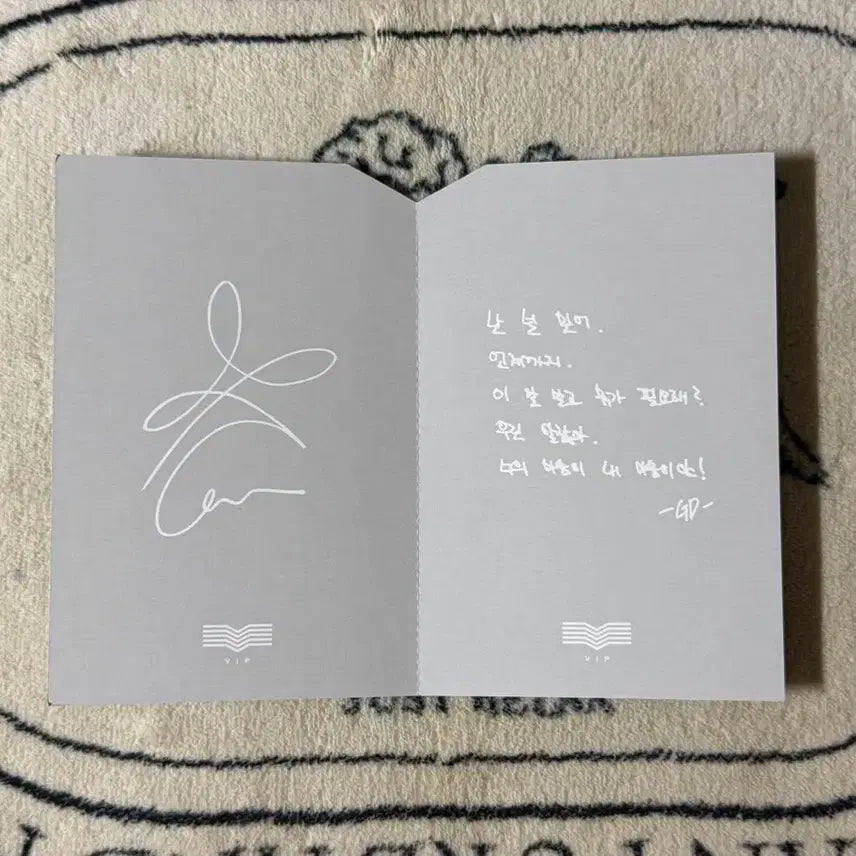 난 널 믿어.
언제까지.
이 말 말고 뭐가 필요해?
우린 알잖아.
너의 마음이 내 마음이란!
-GD-
VIP
VIP
JUST RELAX